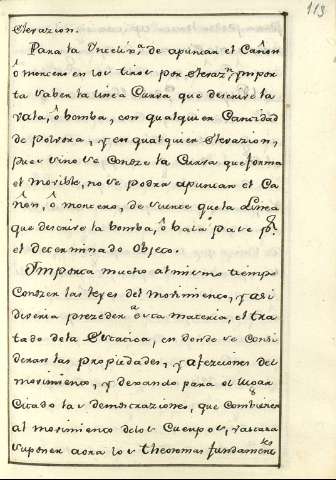 113
elevazion.
Para la Inteliga. de apuntar el Cañon
ô mortero en los tiros por elevazn. ymporta
ta saber la linea Curva que describe la
vala, ô bomba, con qualquier Cantidad
de polvora, y en qualquier elevazion,
pues sino se Conoze la Curva que forma
el movible, no se podra apuntar el Ca
ñon, ô mortero, de suerte que la Linea
que describe la bomba, ô bala pase pr.
el determinado objeto.
Ymporta mucho al mismo tiempo
Conozer las leyes del movimiento, y asi
diseria prezeder a esta materia, el tra
tado dela Estatica, en donde se Consi
deran las propiedades, y afeziones del
movimiento, y dexando para el lugar
Citado las demostraziones, que Combienen
al movimiento delos Cuerpos, vastara
suponer aora los theoremas fundamentes